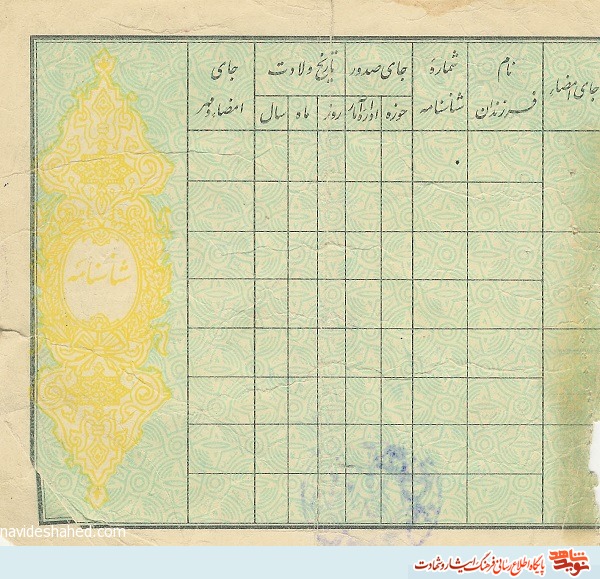 جای امضاء
نام
فرزندان
شماره
شناسنامه
جای صدور
حوزه
اداره آمار
تاریخ ولادت
روز
ماه
سال
جای
امضاء و مهر
شناسنامه
navideshahed.com
نوید شاهد
پایگاه اطلاع رسانی فرهنگ ایثار و شهادت